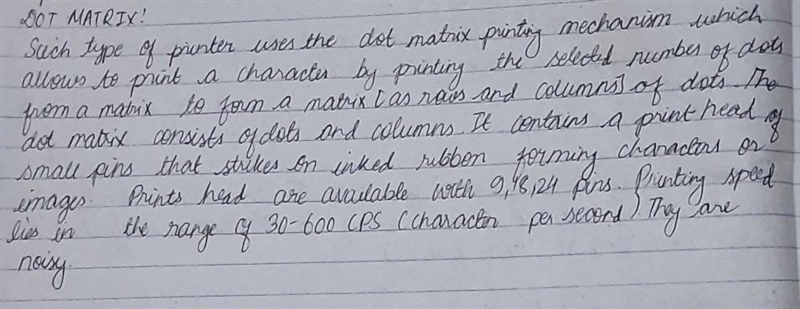 DOT MATRIX!
Such type of printer uses the dot matrix printing mechanism which
allows to print a character by printing the selected number of dots
from a matrix to form a matrix [as rows and columns] of dots. The
dot matrix consists of dots and columns. It contains a print head of
small pins that strikes on inked ribbon forming characters or
images. Prints head are available with 9,18,24 pins. Printing speed
lies in the range of 30-600 CPS (character per second) They are
noisy